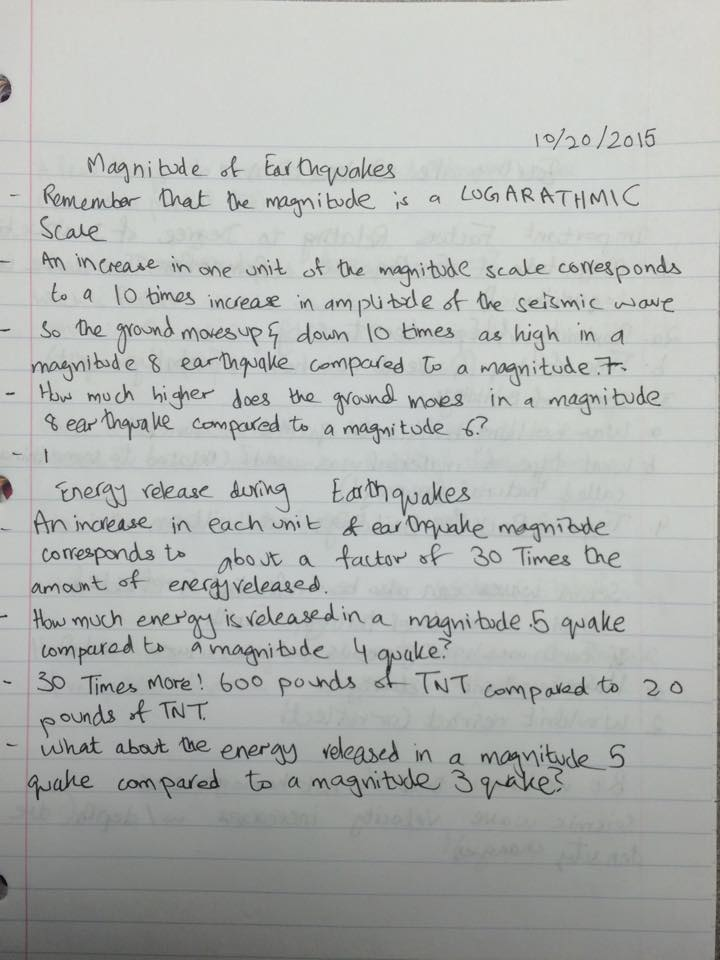 10/20/2015
Magnitude of Earthquakes
- Remember that the magnitude is a LOGARATHMIC
Scale
- An increase in one unit of the magnitude scale corresponds
to a 10 times increase in amplitude of the seismic wave
- So the ground moves up & down 10 times as high in a
magnitude 8 earthquake compared to a magnitude 7.
- How much higher does the ground moves in a magnitude
8 earthquake compared to a magnitude 6?
- 1
Energy release during Earthquakes
- An increase in each unit of earthquake magnitude
corresponds to about a factor of 30 Times the
amount of energy released.
- How much energy is released in a magnitude 5 quake
compared to a magnitude 4 quake?
- 30 Times more! 600 pounds of TNT compared to 20
pounds of TNT.
- What about the energy released in a magnitude 5
quake compared to a magnitude 3 quake?